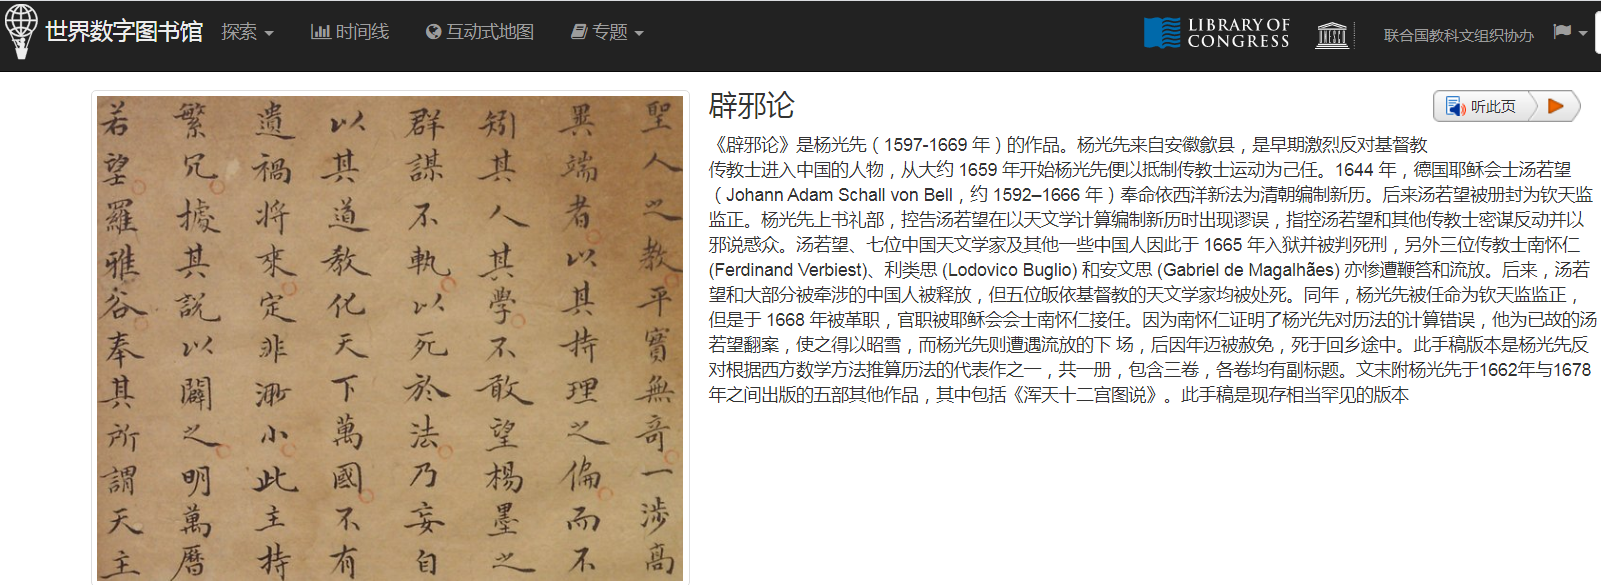 世界数字图书馆 探索 时间线 互动式地图 专题 LIBRARY OF CONGRESS 联合国教科文组织协办
聖人之教平實無竒一涉高
異端者以其持理之偏而不
矧其人其學不敢望楊墨之
群謀不軌以死於法乃妄自
以其道教化天下萬國不有
遺禍將來定非渺小此主持
繁冗據其說以闢之明萬曆
若望羅雅谷奉其所謂天主
辟邪论
听此页
《辟邪论》是杨光先（1597-1669 年）的作品。杨光先来自安徽歙县，是早期激烈反对基督教
传教士进入中国的人物，从大约 1659 年开始杨光先便以抵制传教士运动为己任。1644 年，德国耶稣会士汤若望
（Johann Adam Schall von Bell，约 1592–1666 年）奉命依西洋新法为清朝编制新历。后来汤若望被册封为钦天监
监正。杨光先上书礼部，控告汤若望在以天文学计算编制新历时出现谬误，指控汤若望和其他传教士密谋反动并以
邪说惑众。汤若望、七位中国天文学家及其他一些中国人因此于 1665 年入狱并被判死刑，另外三位传教士南怀仁
(Ferdinand Verbiest)、利类思 (Lodovico Buglio) 和安文思 (Gabriel de Magalhães) 亦惨遭鞭笞和流放。后来，汤若
望和大部分被牵涉的中国人被释放，但五位皈依基督教的天文学家均被处死。同年，杨光先被任命为钦天监监正，
但是于 1668 年被革职，官职被耶稣会会士南怀仁接任。因为南怀仁证明了杨光先对历法的计算错误，他为已故的汤
若望翻案，使之得以昭雪，而杨光先则遭遇流放的下 场，后因年迈被赦免，死于回乡途中。此手稿版本是杨光先反
对根据西方数学方法推算历法的代表作之一，共一册，包含三卷，各卷均有副标题。文末附杨光先于1662年与1678
年之间出版的五部其他作品，其中包括《浑天十二宫图说》。此手稿是现存相当罕见的版本